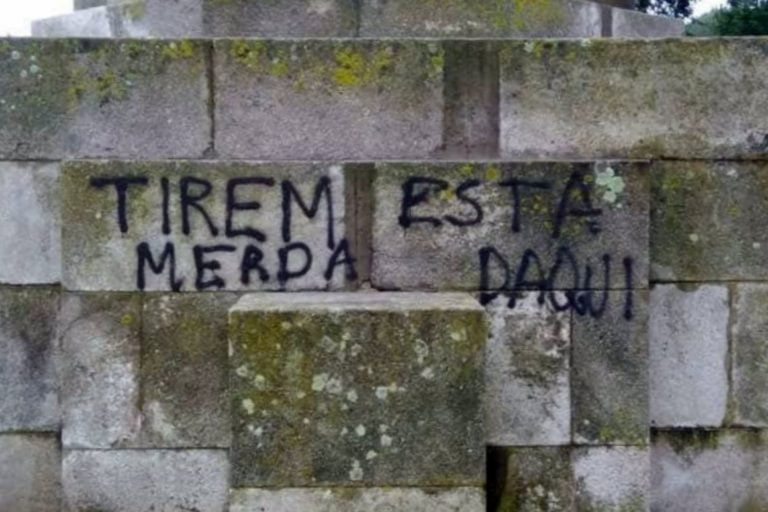 TIREM ESTA
MERDA DAQUI